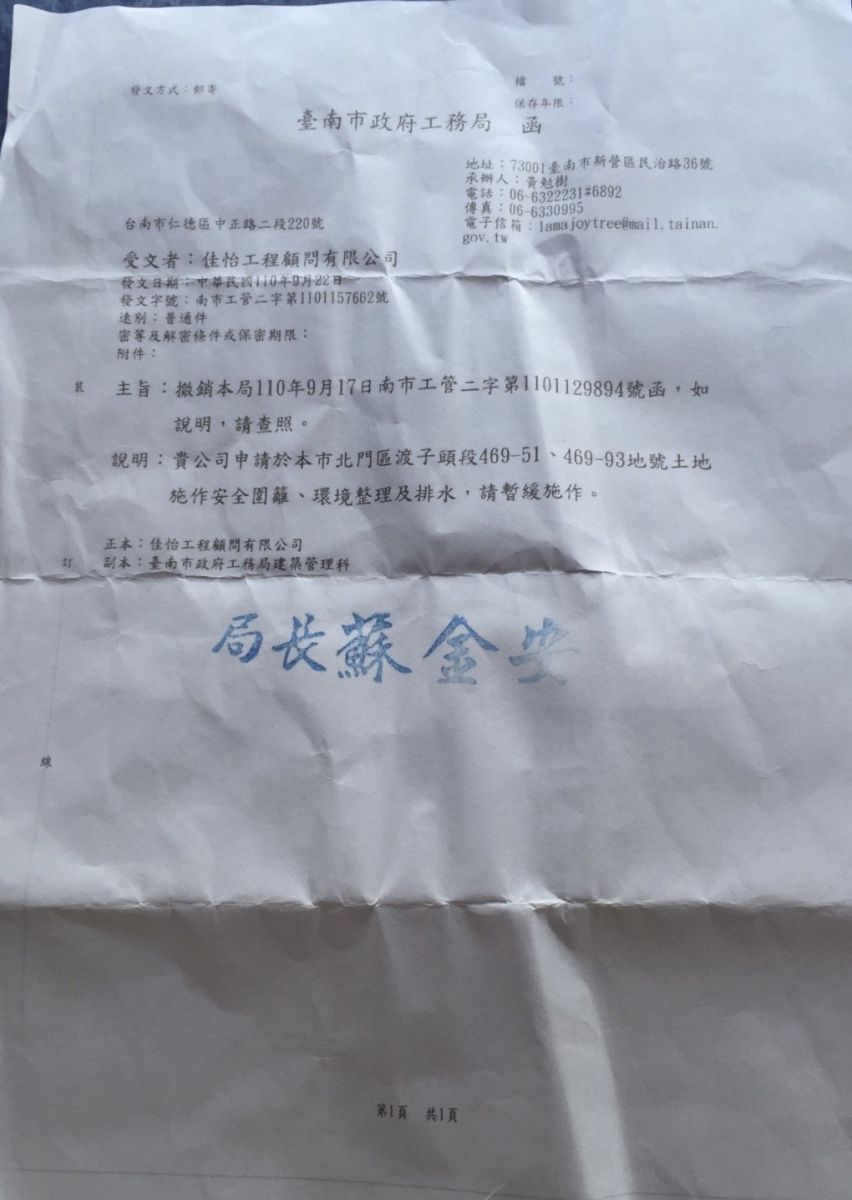 檔　號：
保存年限：
發文方式：郵寄
臺南市政府工務局　函
地址：73001臺南市新營區民治路36號
承辦人：黃勉樹
電話：06-6322231#6892
傳真：06-6330995
電子信箱：lamajoytree@mail.tainan.
gov.tw
台南市仁德區中正路二段220號
受文者：佳怡工程顧問有限公司
發文日期：中華民國110年9月22日
發文字號：南市工管二字第1101157662號
速別：普通件
密等及解密條件或保密期限：
附件：
主旨：撤銷本局110年9月17日南市工管二字第1101129894號函，如
說明，請查照。
說明：貴公司申請於本市北門區渡子頭段469-51、469-93地號土地
施作安全圍籬、環境整理及排水，請暫緩施作。
正本：佳怡工程顧問有限公司
副本：臺南市政府工務局建築管理科
局長蘇金安
裝
訂
線
第1頁　共1頁